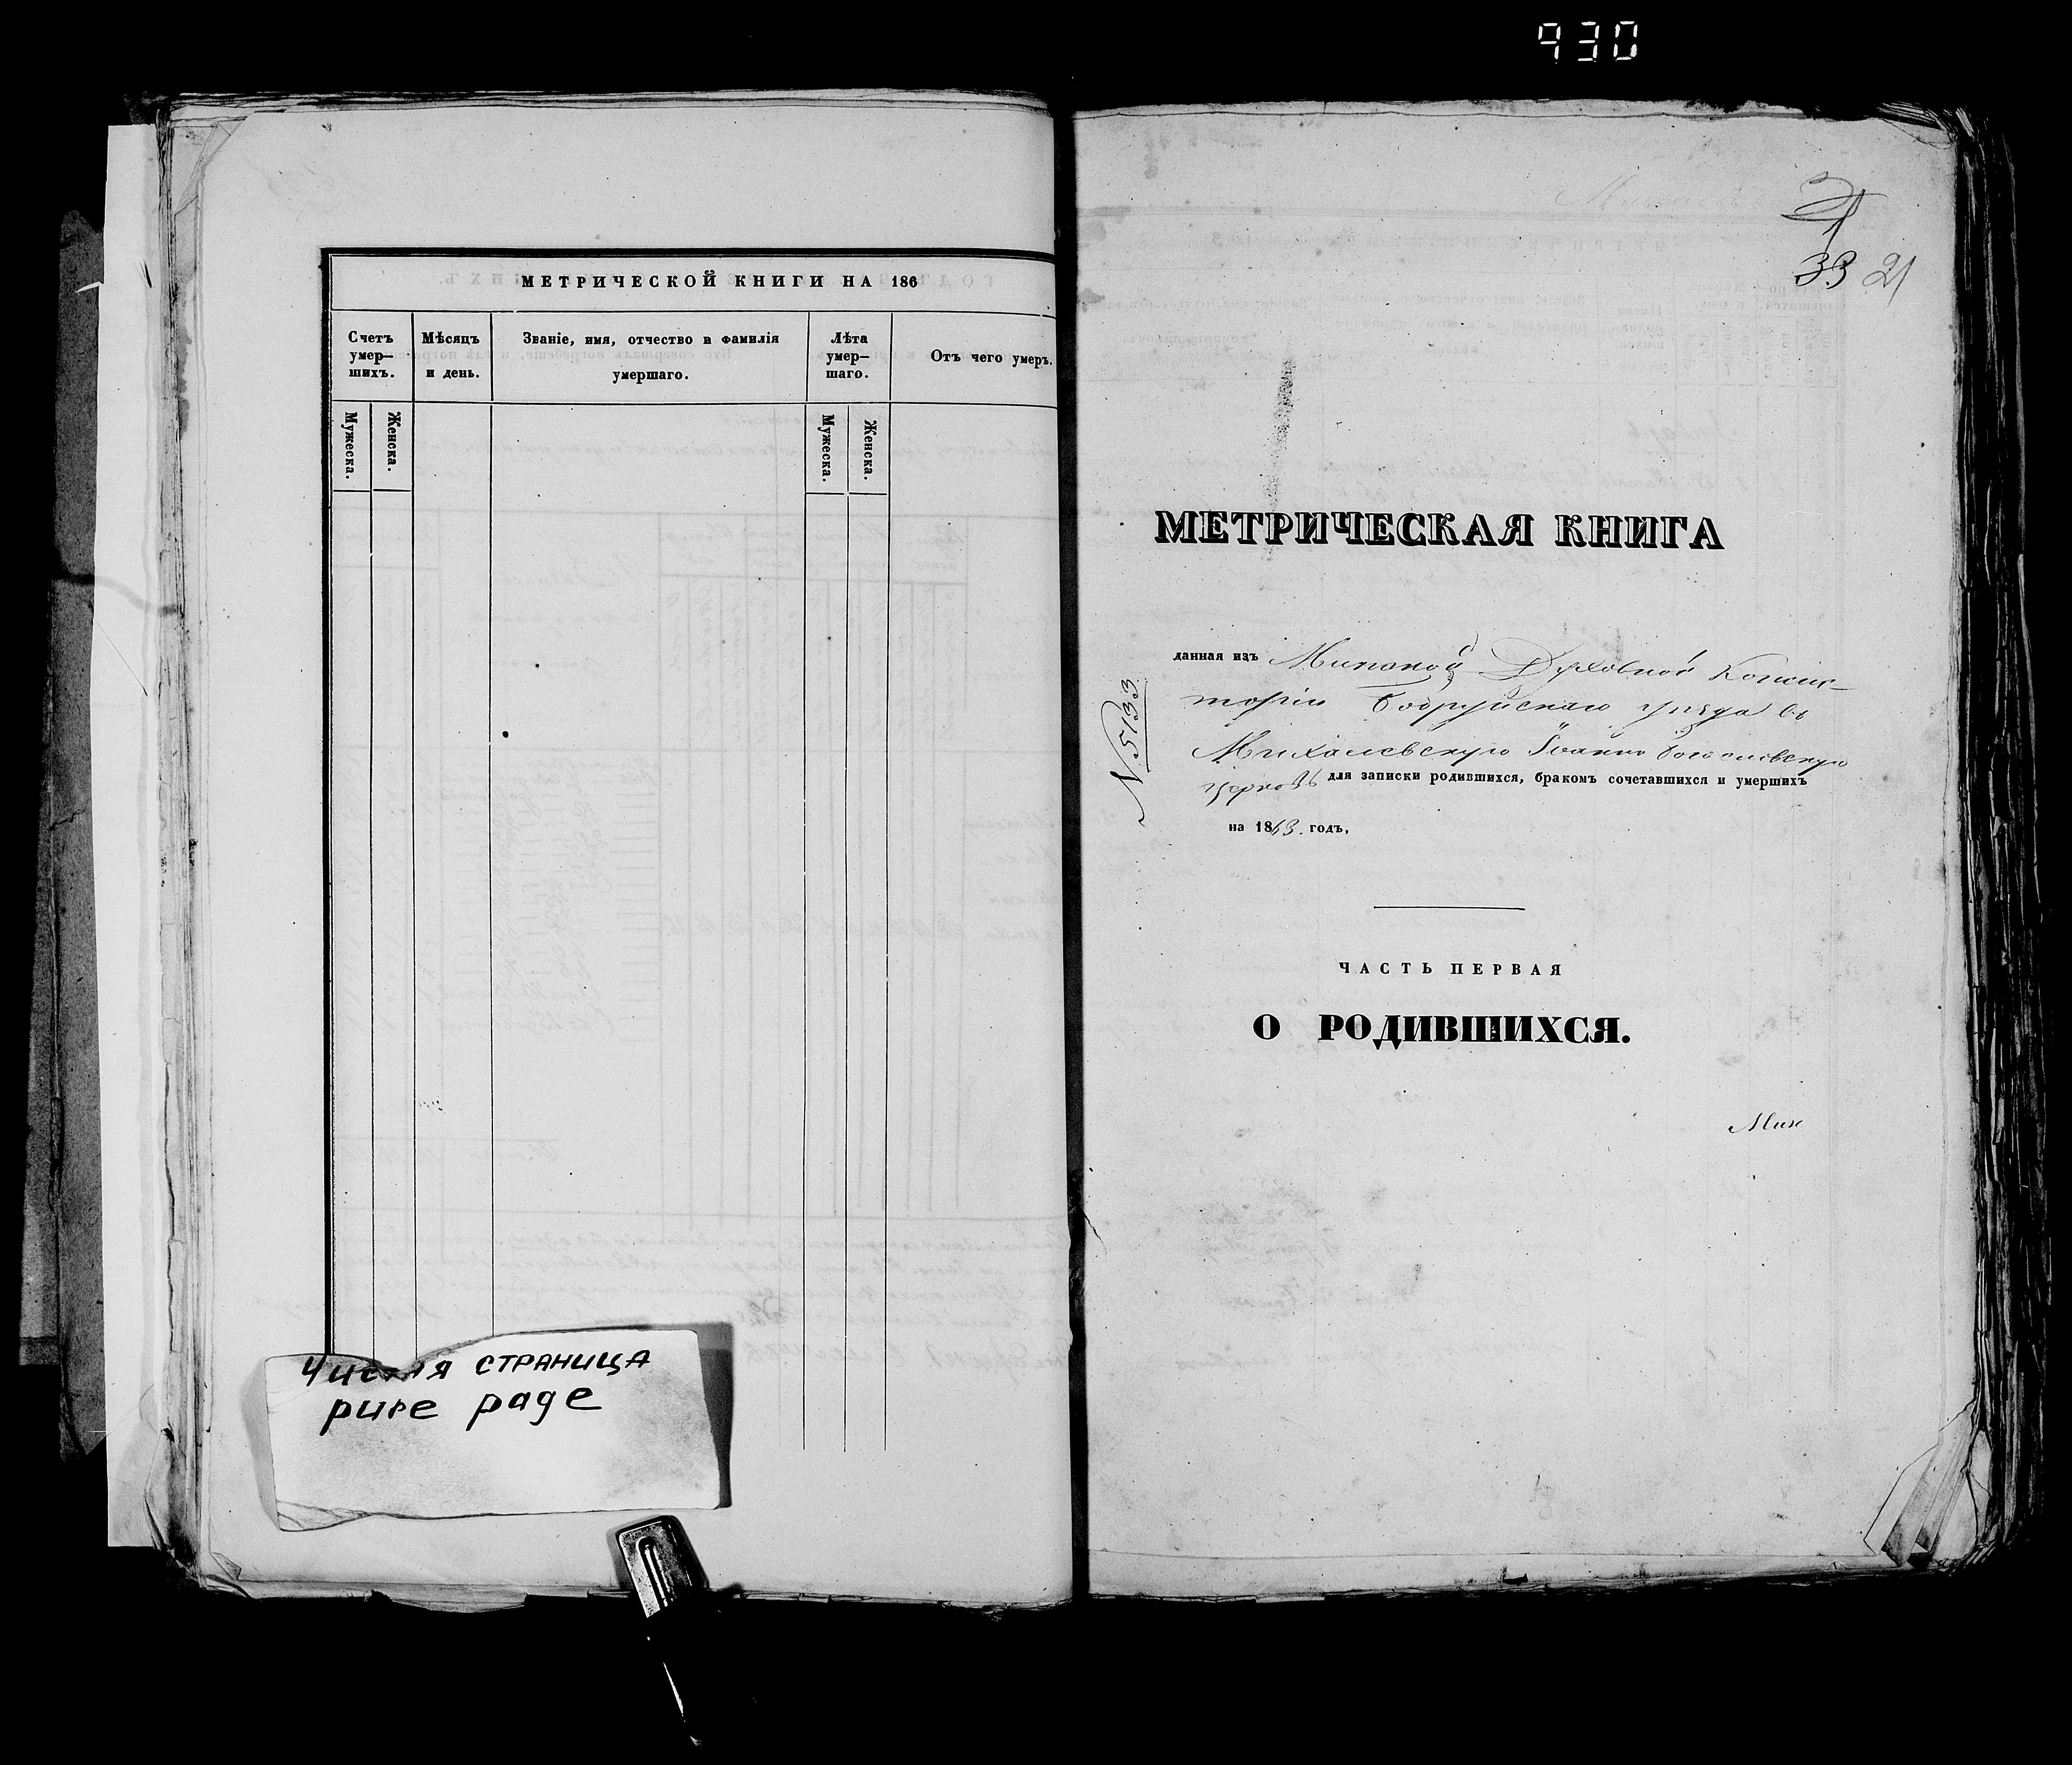 930
МЕТРИЧЕСКОЙ КНИГИ НА 186
Счетъ умер—шихъ.
Мѣсяцъ и день.
Званіе, имя, отчество и фамилія умершаго.
Лѣта умер—шаго.
Отъ чего умеръ.
Мужеска.
Женска.
Мужеска.
Женска.
Чистая страница
pure page
33 21
МЕТРИЧЕСКАЯ КНИГА
данная изъ Минской Духовной Консис-
торіи Бобруйскаго уѣзда въ
Михалевскую Іоанно Богословскую
церковь для записки родившихся, бракомъ сочетавшихся и умершихъ
на 1863. годъ,
N 5133
ЧАСТЬ ПЕРВАЯ
О РОДИВШИХСЯ.
Мин